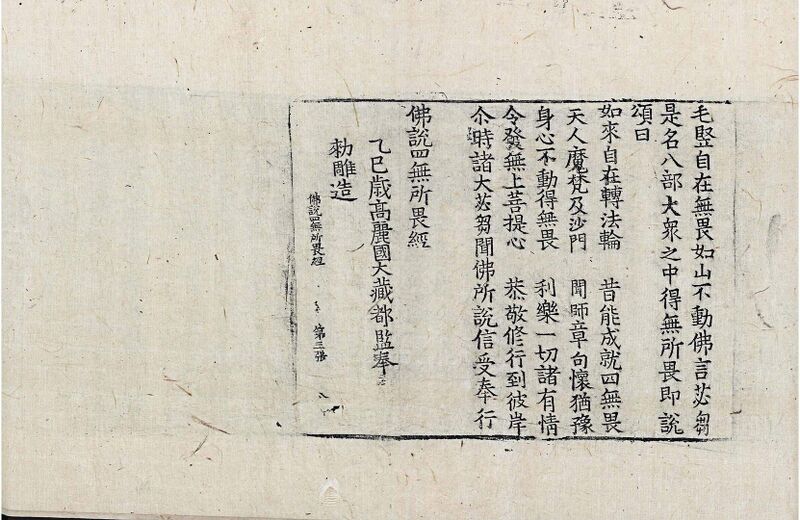 毛竪自在無畏如山不動佛言苾芻
是名八部大衆之中得無所畏即說
頌曰
如來自在轉法輪　昔能成就四無畏
天人魔梵及沙門　聞師章句懷猶豫
身心不動得無畏　利樂一切諸有情
令發無上菩提心　恭敬修行到彼岸
尒時諸大苾芻聞佛所說信受奉行
佛說四無所畏經
乙巳歲高麗國大藏都監奉
勅雕造
佛說四無所畏經　第三張